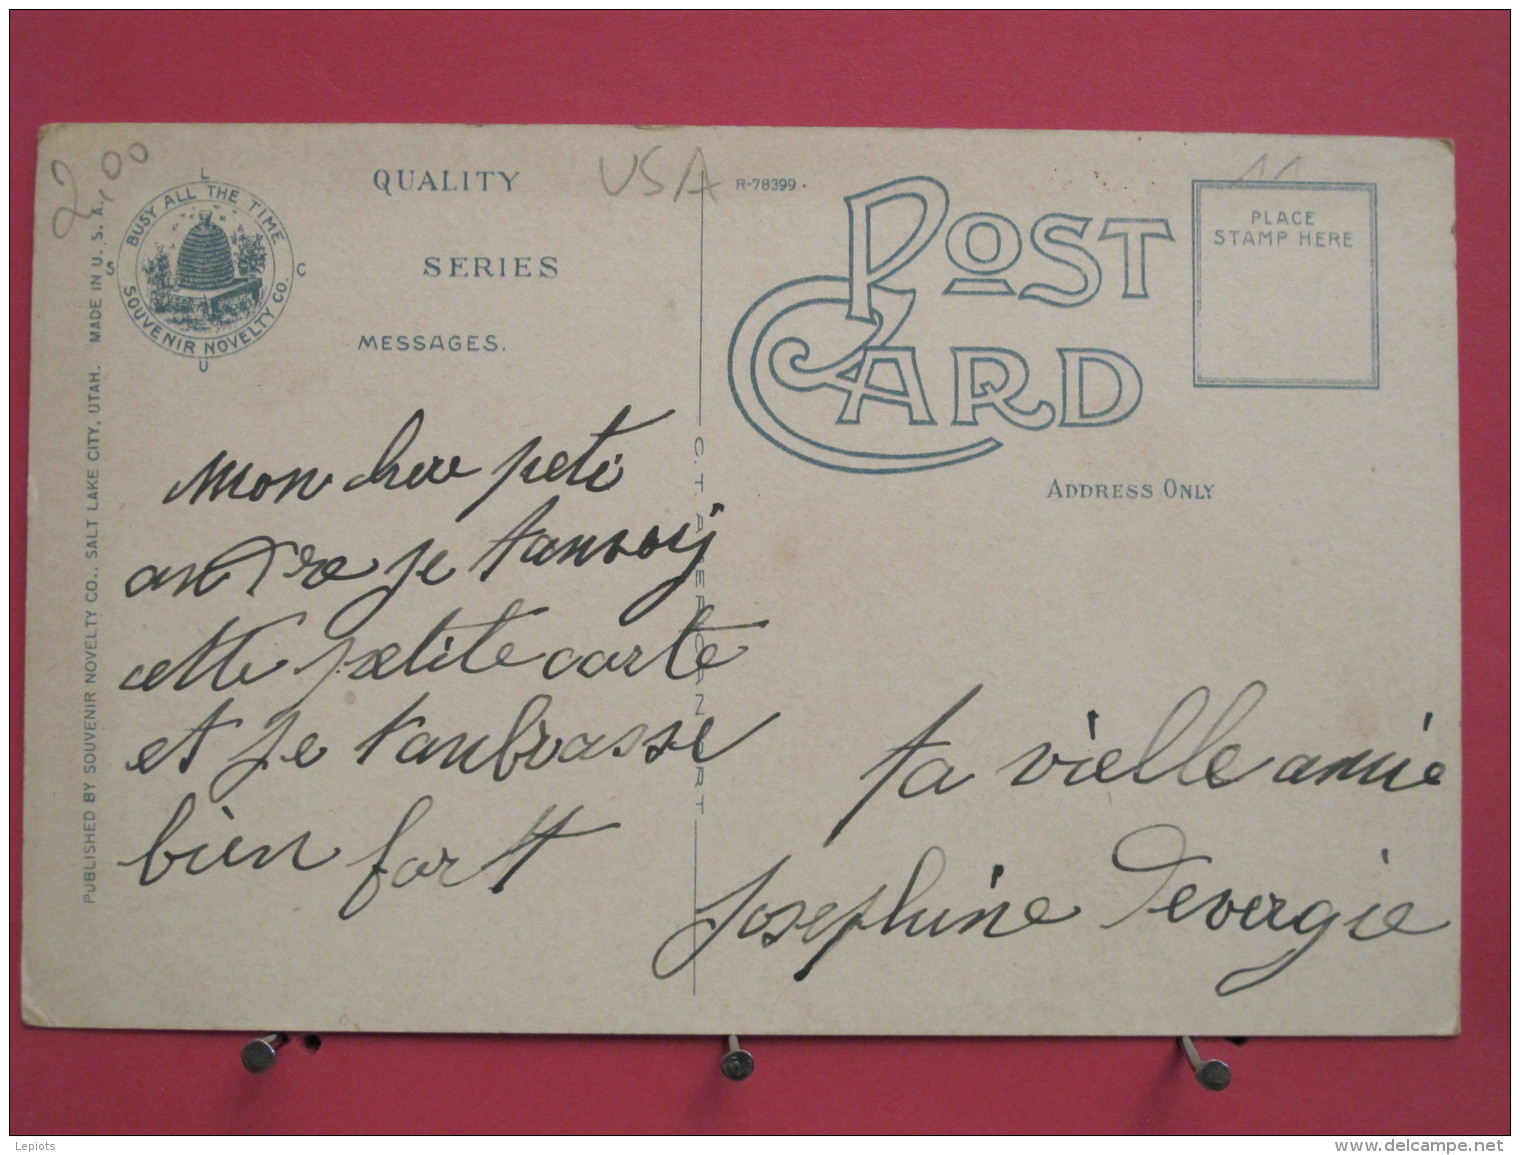 2,00
L
BUSY ALL THE TIME
S C
SOUVENIR NOVELTY CO.
U
QUALITY
SERIES
MESSAGES.
USA
R-78399.
POST
CARD
11
PLACE
STAMP HERE
ADDRESS ONLY
PUBLISHED BY SOUVENIR NOVELTY CO., SALT LAKE CITY, UTAH. MADE IN U.S.A.
C.T. AMERICAN ART
mon chere peti
andre je tanvoij
cette petite carte
et je tanbrasse
bien fortt
ta vielle amie
Josephine Devergie
Lepiots
www.delcampe.net